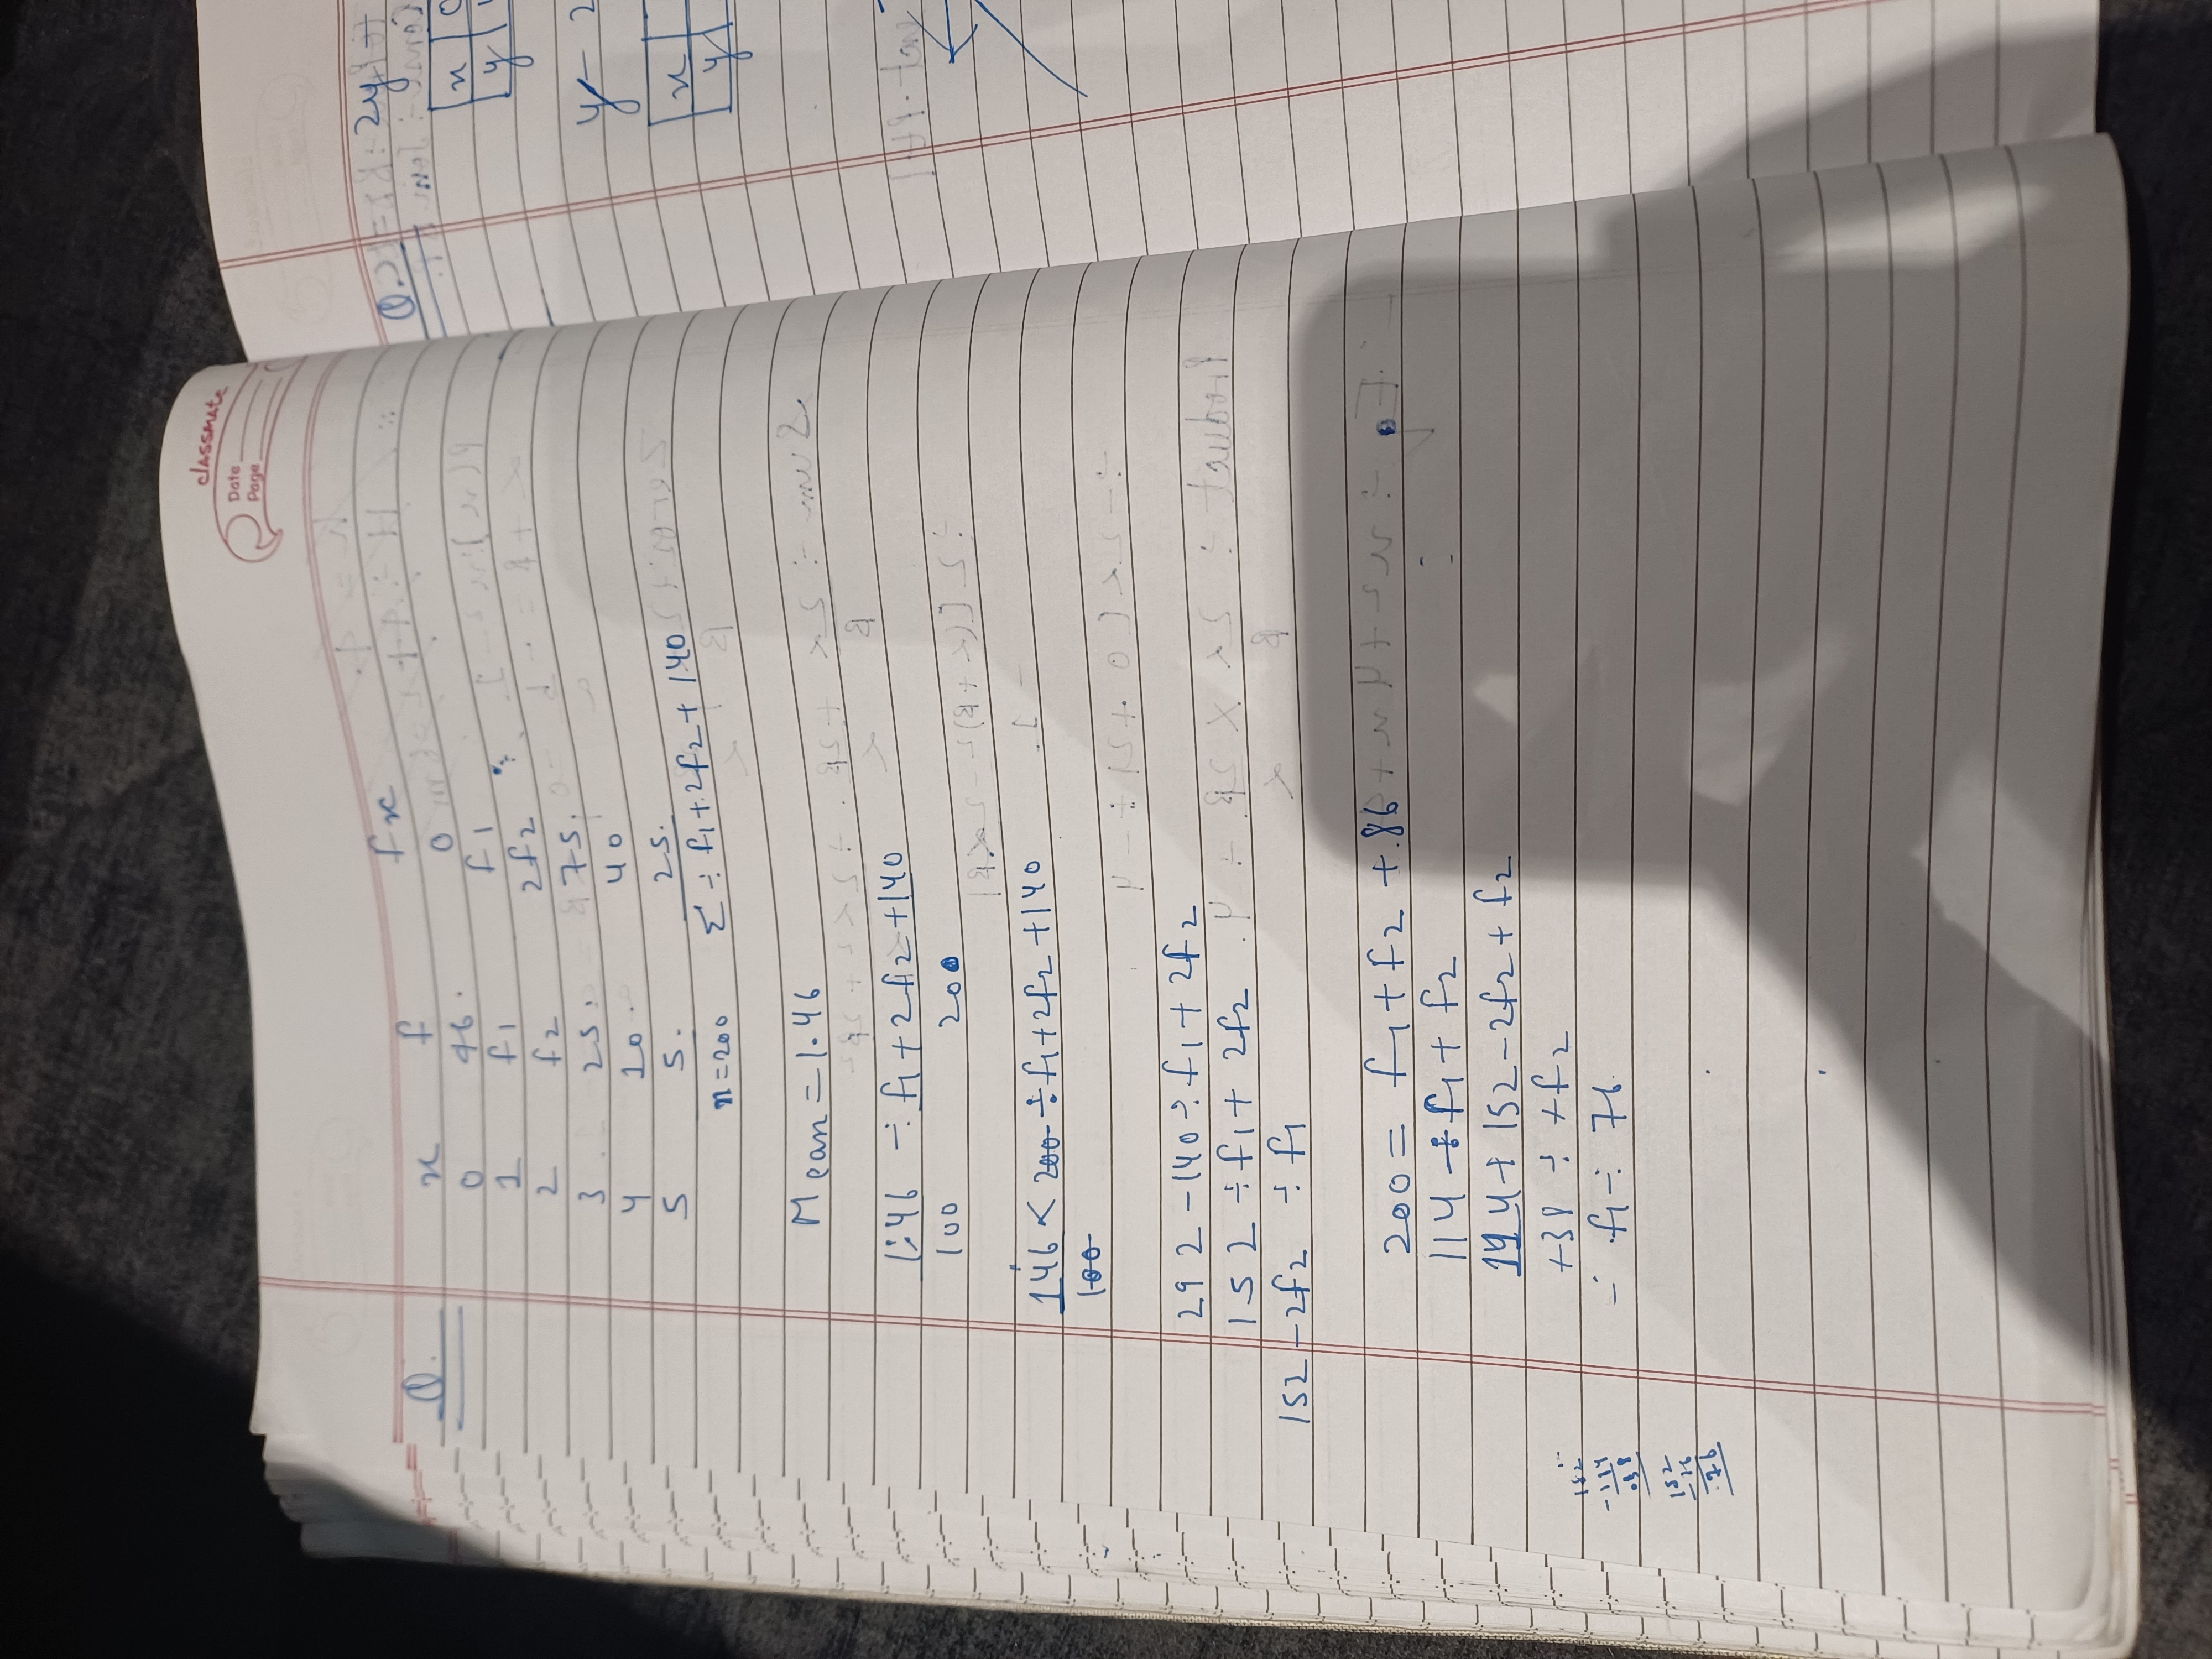 classmate
Date
Page
Q.
x f fx
0 46. 0
1 f1 f1
2 f2 2f2
3 25. 75.
4 10. 40
5 5. 25.
n=200 Σ ÷ f1+2f2+140
Mean = 1.46
1.46 ÷ f1+2f2+140
100 200
146 × 200 ÷ f1+2f2+140
100
292-140 ÷ f1+2f2
152 ÷ f1+2f2
152-2f2 ÷ f1
200 = f1+f2+86
114 ÷ f1+f2
114+152-2f2+f2
+38 ÷ +f2
= f1 ÷ 76.
152
-114
038
152
-76
76
x 0
y
y-2
x
y